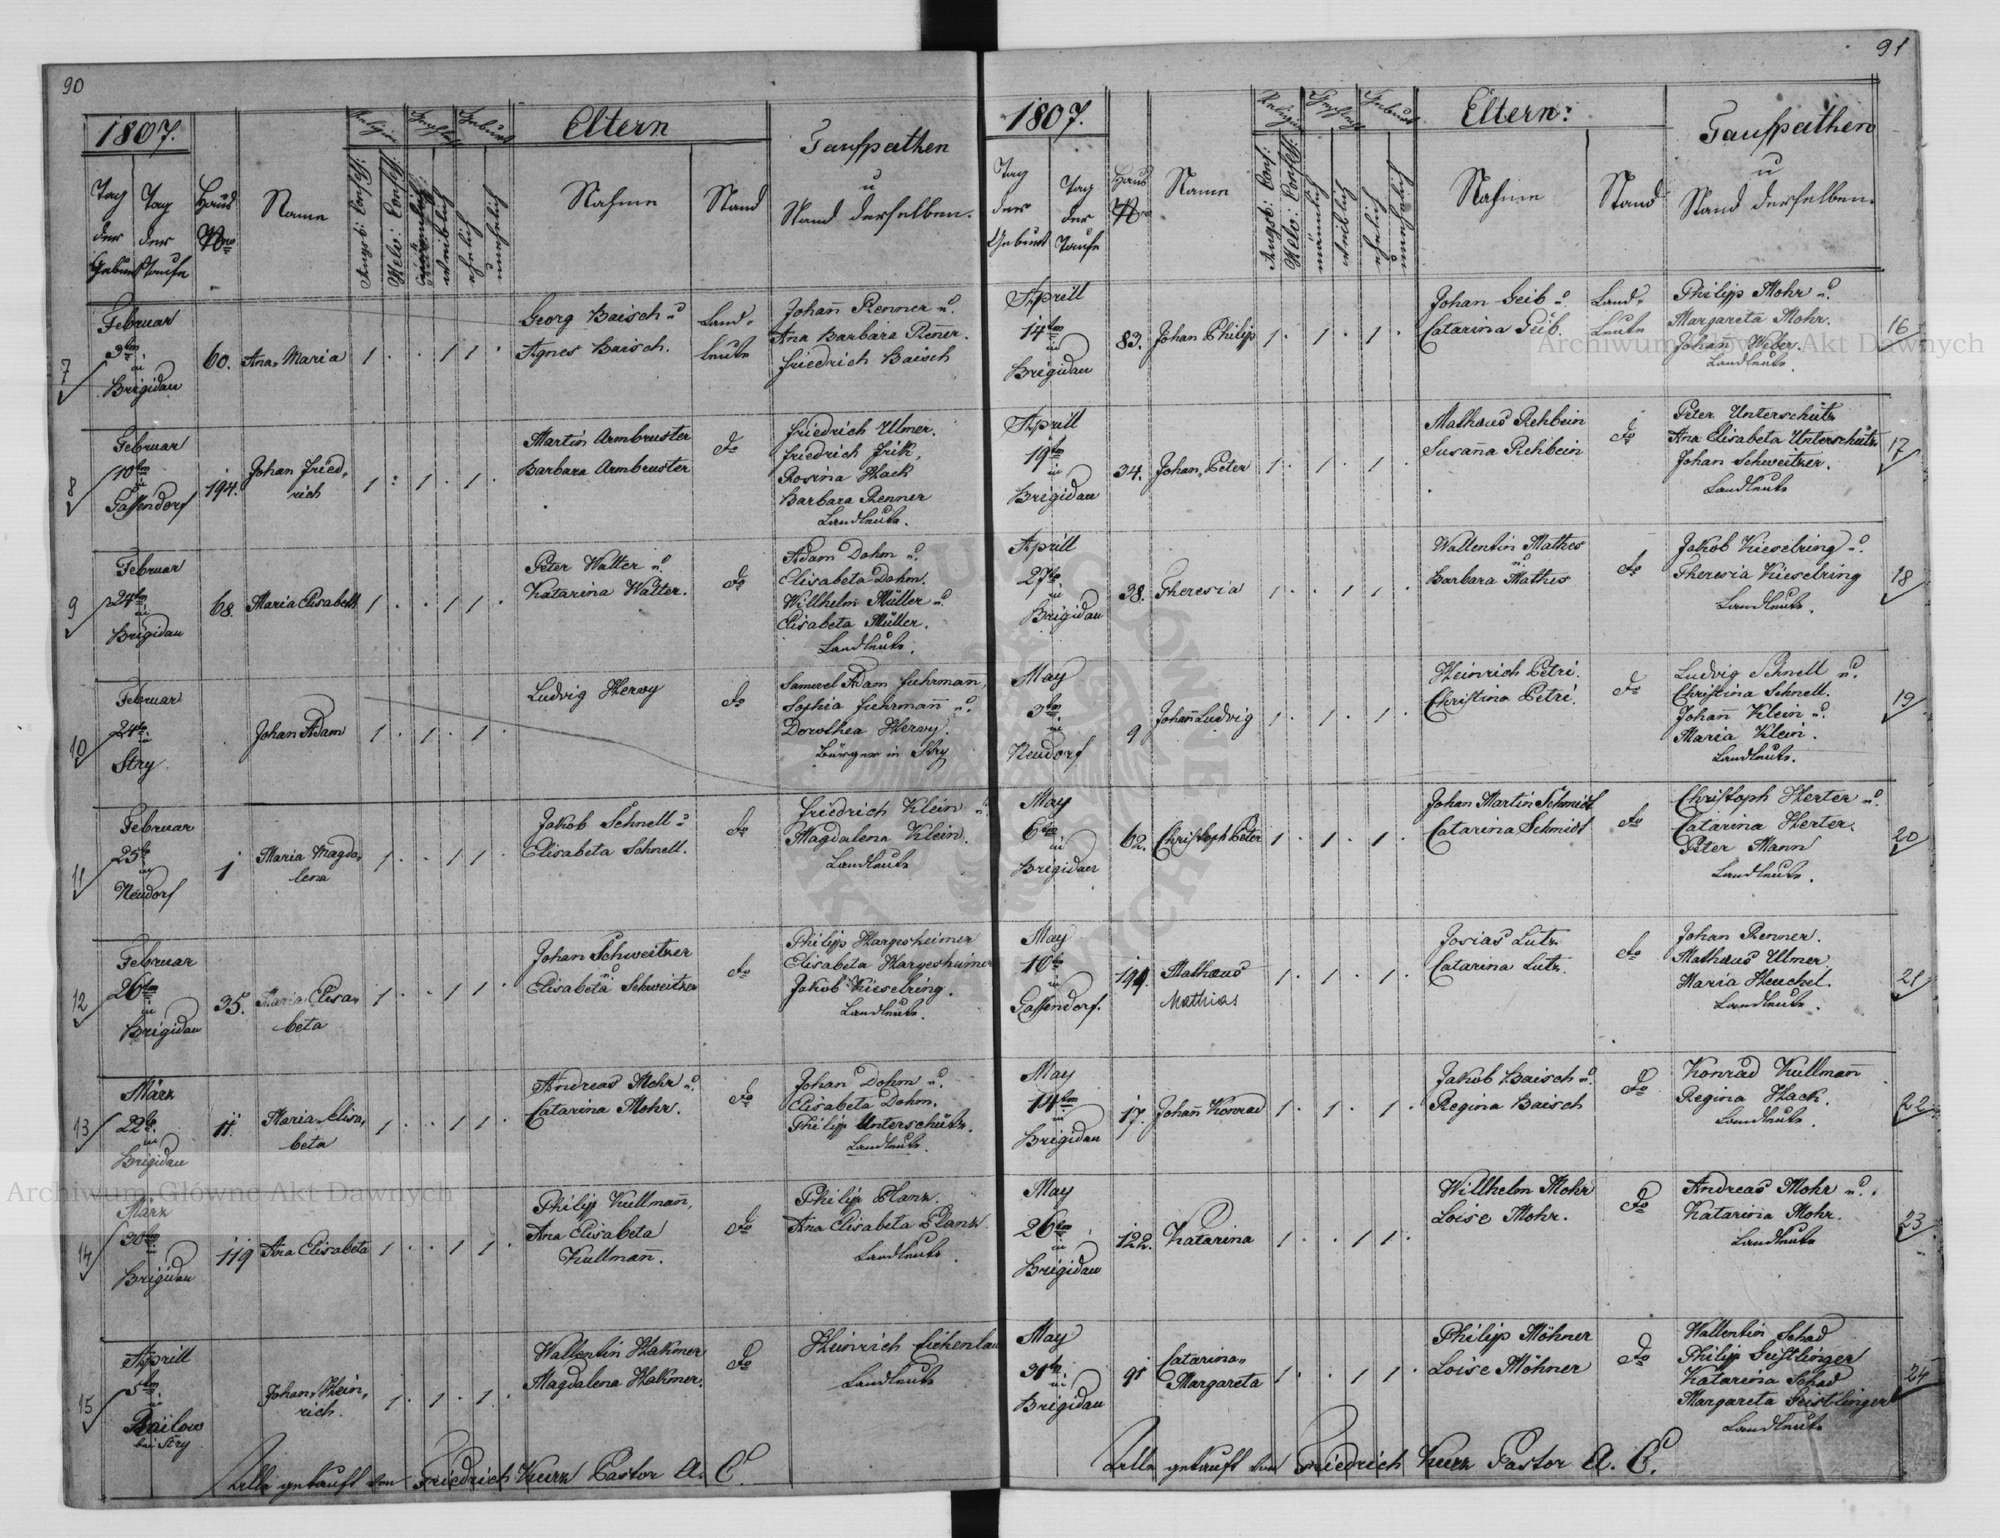 90
1807.
Religion
Geschlecht
Geburt
Eltern
Taufpathen
u
Stand derselben.
Tag der Geburt
Tag der Taufe
Haus Nro
Name
Augsb: Confess:
Helv: Confess:
männlich
weiblich
ehelich
unehelich
Nahme
Stand
7
Februar
3tn
in
Brigidau
60.
Ana Maria
1 . . 1 1 .
Georg Baisch u
Agnes Baisch.
Land-
leute
Johañ Renner u.
Ana Barbara Reñer.
Friedrich Baisch
8
Februar
10tn
in
Gassendorf
194.
Johan Fried,
rich
1 : 1 . 1 .
Martin Armbruster
Barbara Armbruster
do
Friedrich Ulmer.
Friedrich Frik,
Rosina Hack
Barbara Renner
Landleute.
9
Februar
24tn
in
Brigidau
68.
Maria Elisabeth
1 . . 1 1 .
Peter Walter u.
Katarina Walter.
do
Adam Dohm u.
Elisabeta Dohm.
Willhelm Müller u.
Elisabeta Müller.
Landleute.
10
Februar
24tn
in
Stry
Johan Adam
1 . 1 . 1 .
Ludvig Hervy
do
Samuel Adam Fuhrmañ,
Sophia Fuhrmañ u.
Dorothea Hervy.
Bürger in Stry
11
Februar
25tn
in
Neudorf
1
Maria Magda,
lena
1 . . 1 1 .
Jakob Schnell u
Elisabeta Schnell.
do
Friedrich Klein u.
Magdalena Klein.
Landleute
12
Februar
26tn
in
Brigidau
35.
Maria Elisa,
beta
1 . . 1 1 .
Johan Schweitzer
u.
Elisabeta Schweitzer
do
Philip Hargesheimer
Elisabeta Hargesheimer
Jakob Kieselring.
Landleute.
13
März
22tn
in
Brigidau
11.
Maria Elisa,
beta
1 . . 1 1 .
Andreas Mohr u.
Catarina Mohr.
do
Johan Dohm u.
Elisabeta Dohm.
Philip Unterschütz.
Landleute.
14
März
30tn
in
Brigidau
119
Ana Elisabeta
1 . . 1 1 .
Philip Kullmañ,
Ana Elisabeta
Kullmañ.
do
Philip Planz.
Ana Elisabeta Planz.
Landleute
15
Aprill
5tn
in
bei Stry
Johan Hein,
rich.
1 . 1 . 1 .
Wallentin Hakmer
Magdalena Hakmer.
do
Heinrich Eichenlau
Landleute
Alle getauft von Friedrich Kurz Pastor A. C.
91
1807.
Religion
Geschlecht
Geburt
Eltern:
Taufpathen
u
Stand derselben.
Tag der Geburt
Tag der Taufe
Haus Nro
Name
Augsb: Conf:
Helv: Confess:
männlich
weiblich
ehelich
unehelich
Nahme
Stand
Aprill
14tn
in
Brigidau
83.
Johan Philip
1 . 1 . 1 .
Johan Geib u.
Catarina Geib.
Land-
leute
Philip Mohr u.
Margareta Mohr.
Johañ Weber.
Landleute
16
Aprill
19tn
in
Brigidau
34.
Johan Peter
1 . 1 . 1 .
Mathäus Rehbein
Susaña Rehbein
do
Peter Unterschütz
Ana Elisabeta Unterschütz
Johan Schweitzer.
Landleute
17
Aprill
27tn
in
Brigidau
38.
Theresia
1 . . 1 1 .
Wallentin Mathes
u.
Barbara Mathes
do
Jakob Kieselring u.
Theresia Kieselring
Landleute.
18
May
3tn
in
Neudorf
9
Johañ Ludvig
1 . 1 . 1 .
Heinrich Petri.
Christina Petri.
do
Ludvig Schnell u.
Christina Schnell.
Johañ Klein u.
Maria Klein.
Landleute.
19
May
6tn
in
Brigidau
62.
Christoph Peter
1 . 1 . 1 .
Johan Martin Schmidt
Catarina Schmidt
do
Christoph Herter u.
Catarina Herter.
Peter Mann
Landleute.
20
May
10tn
in
Gassendorf.
194.
Mathäus
Mathias
1 . 1 . 1 .
Josias Lutz
Catarina Lutz.
do
Johan Renner.
Mathäus Ulmer.
Maria Heuchel.
Landleute.
21
May
14tn
in
Brigidau
17.
Johañ Konrad
1 . 1 . 1 .
Jakob Baisch u.
Regina Baisch
do
Konrad Kullmañ
Regina Hack.
Landleute.
22
May
26tn
in
Brigidau
122.
Katarina
1 . . 1 1 .
Willhelm Mohr
Loise Mohr.
do
Andreas Mohr u.
Katarina Mohr.
Landleute
23
May
31tn
in
Brigidau
91
Catarina,
Margareta
1 . . 1 1 .
Philip Möhner
Loise Möhner
do
Wallentin Schad
Philip Geistlinger
Katarina Schad
Margareta Geistlinger
Landleute
24
Alle getauft von Friedrich Kurz Pastor A. C.
Archiwum Główne Akt Dawnych
Archiwum Główne Akt Dawnych